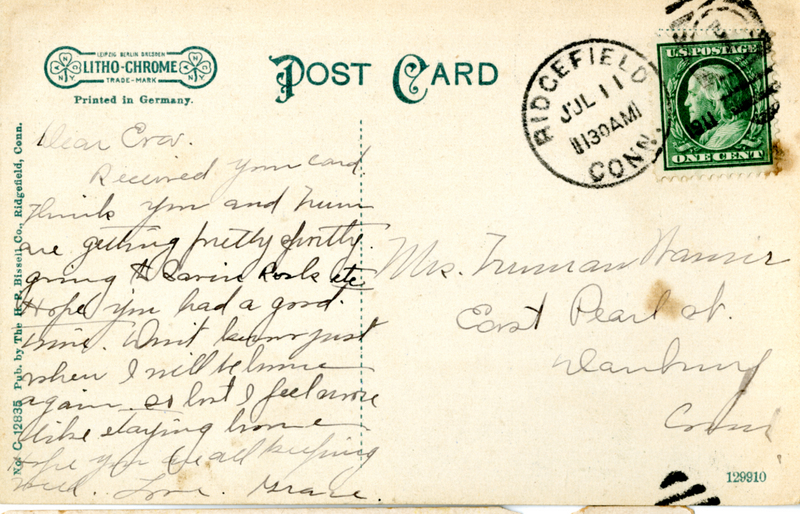 LEIPZIG BERLIN DRESDEN
LITHO-CHROME
TRADE-MARK
Printed in Germany.
POST CARD
RIDGEFIELD
JUL 11
1130AM
CONN.
U.S. POSTAGE
ONE CENT
No. C 12835 Pub. by The H. P. Bissell Co., Ridgefield, Conn.
Dear Eva.
Received your card
Think you and Trum
are getting pretty sporty.
going to Savin Rock etc
Hope you had a good
time. Don't know just
when I will be home
again. I feel more
like staying home
Hope you are all keeping
well. Love. Grace.
Mrs. Truman Warner
East Pearl st.
Danbury
Conn
129910